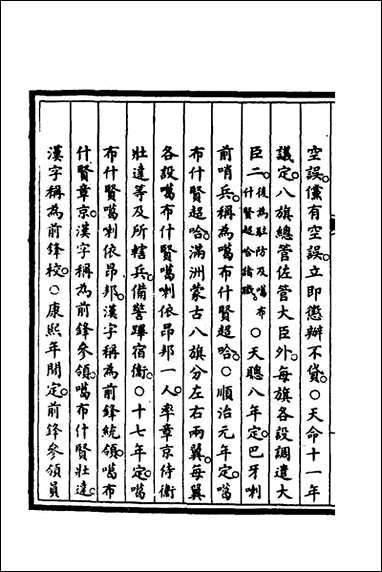 空誤儻有空誤立即懲辦不貸○天命十一年
議定八旗總管佐管大臣外每旗各設調遣大
臣二後為駐防及噶布什賢超哈諸職○天聰八年定巴牙喇
前哨兵稱為噶布什賢超哈○順治元年定噶
布什賢超哈滿洲蒙古八旗分左右兩翼每翼
各設噶布什賢噶喇依昂邦一人率章京侍衛
壯達等及所轄兵備警蹕宿衛○十七年定噶
布什賢噶喇依昂邦漢字稱為前鋒統領噶布
什賢章京漢字稱為前鋒參領噶布什賢壯達
漢字稱為前鋒校○康熙年間定前鋒參領員